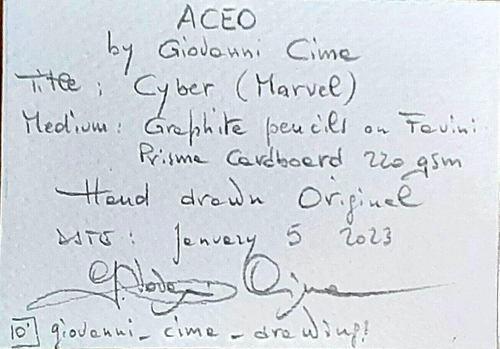 ACEO
by Giovanni Cime
Title: Cyber (Marvel)
Medium: Graphite pencils on Favini
Prisma Cardboard 220 gsm
Hand drawn Original
DATE: January 5 2023
Giovanni Cime
giovanni_cime_drawings